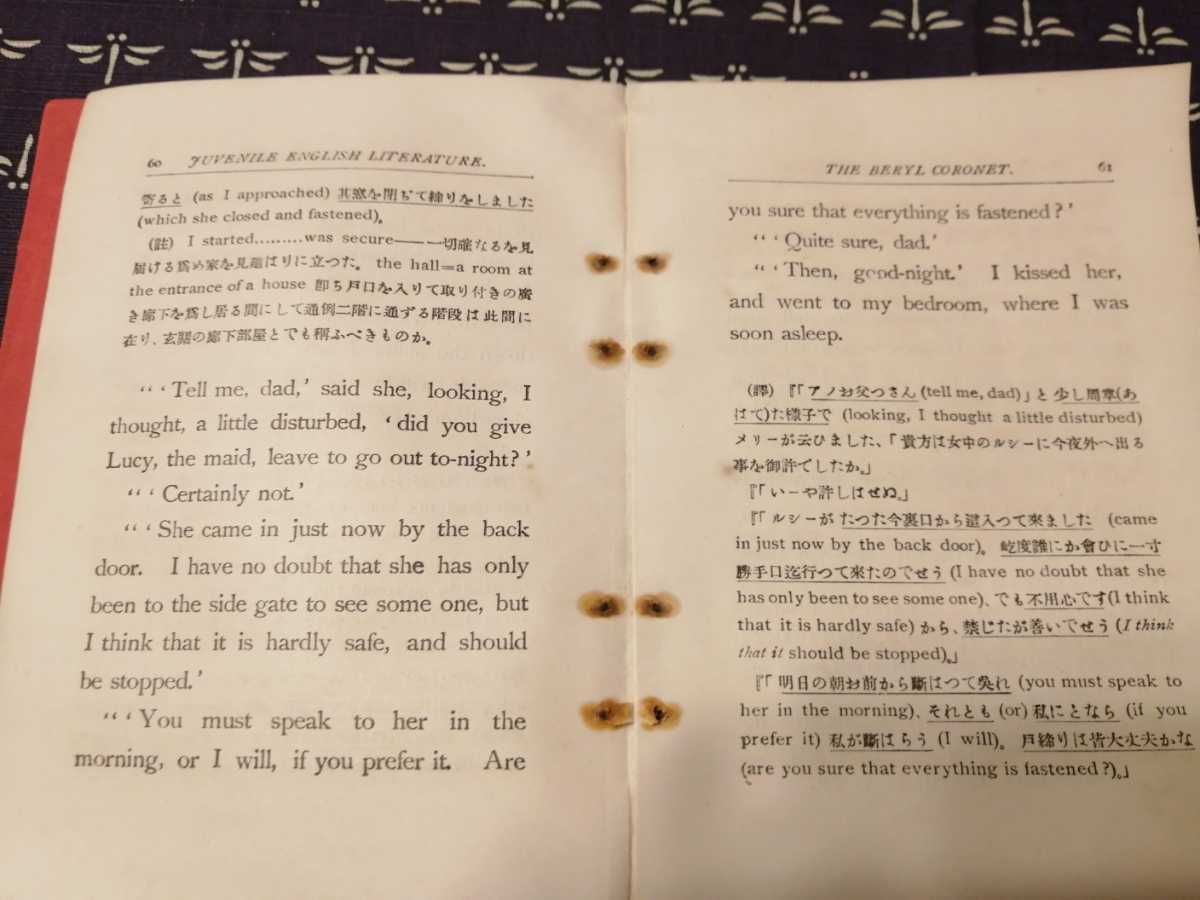 60 JUVENILE ENGLISH LITERATURE.
寄ると (as I approached) 其窓を閉ぢて締りをしました
(which she closed and fastened)。
(註) I started.........was secure——一切確なるを見
届ける爲め家を見廻はりに立つた。 the hall=a room at
the entrance of a house 卽ち戸口を入りて取り付きの廣
き廊下を爲し居る間にして通例二階に通ずる階段は此間に
在り、玄關の廊下部屋とでも稱ふべきものか。
“ ‘ Tell me, dad,’ said she, looking, I
thought, a little disturbed, ‘did you give
Lucy, the maid, leave to go out to-night?’
“ ‘ Certainly not.’
“ ‘ She came in just now by the back
door. I have no doubt that she has only
been to the side gate to see some one, but
I think that it is hardly safe, and should
be stopped.’
“ ‘ You must speak to her in the
morning, or I will, if you prefer it. Are
THE BERYL CORONET. 61
you sure that everything is fastened?’
“ ‘ Quite sure, dad.’
“ ‘ Then, good-night.’ I kissed her,
and went to my bedroom, where I was
soon asleep.
(譯) 『「アノお父つさん (tell me, dad)」と 少し周章(あ
はて)た樣子で (looking, I thought a little disturbed)
メリーが云ひました、「貴方は女中のルシーに今夜外へ出る
事を御許でしたか。」
『「いーや許しはせぬ。」
『「ルシーが たつた今裏口から這入つて來ました (came
in just now by the back door)。 屹度誰にか會ひに一寸
勝手口迄行つて來たのでせう (I have no doubt that she
has only been to see some one)、でも不用心です(I think
that it is hardly safe) から、禁じたが善いでせう (I think
that it should be stopped)。」
『「明日の朝お前から斷はつて吳れ (you must speak to
her in the morning)、それとも (or) 私にとなら (if you
prefer it) 私が斷はらう (I will)。 戸締りは皆大丈夫かな
(are you sure that everything is fastened?)。」